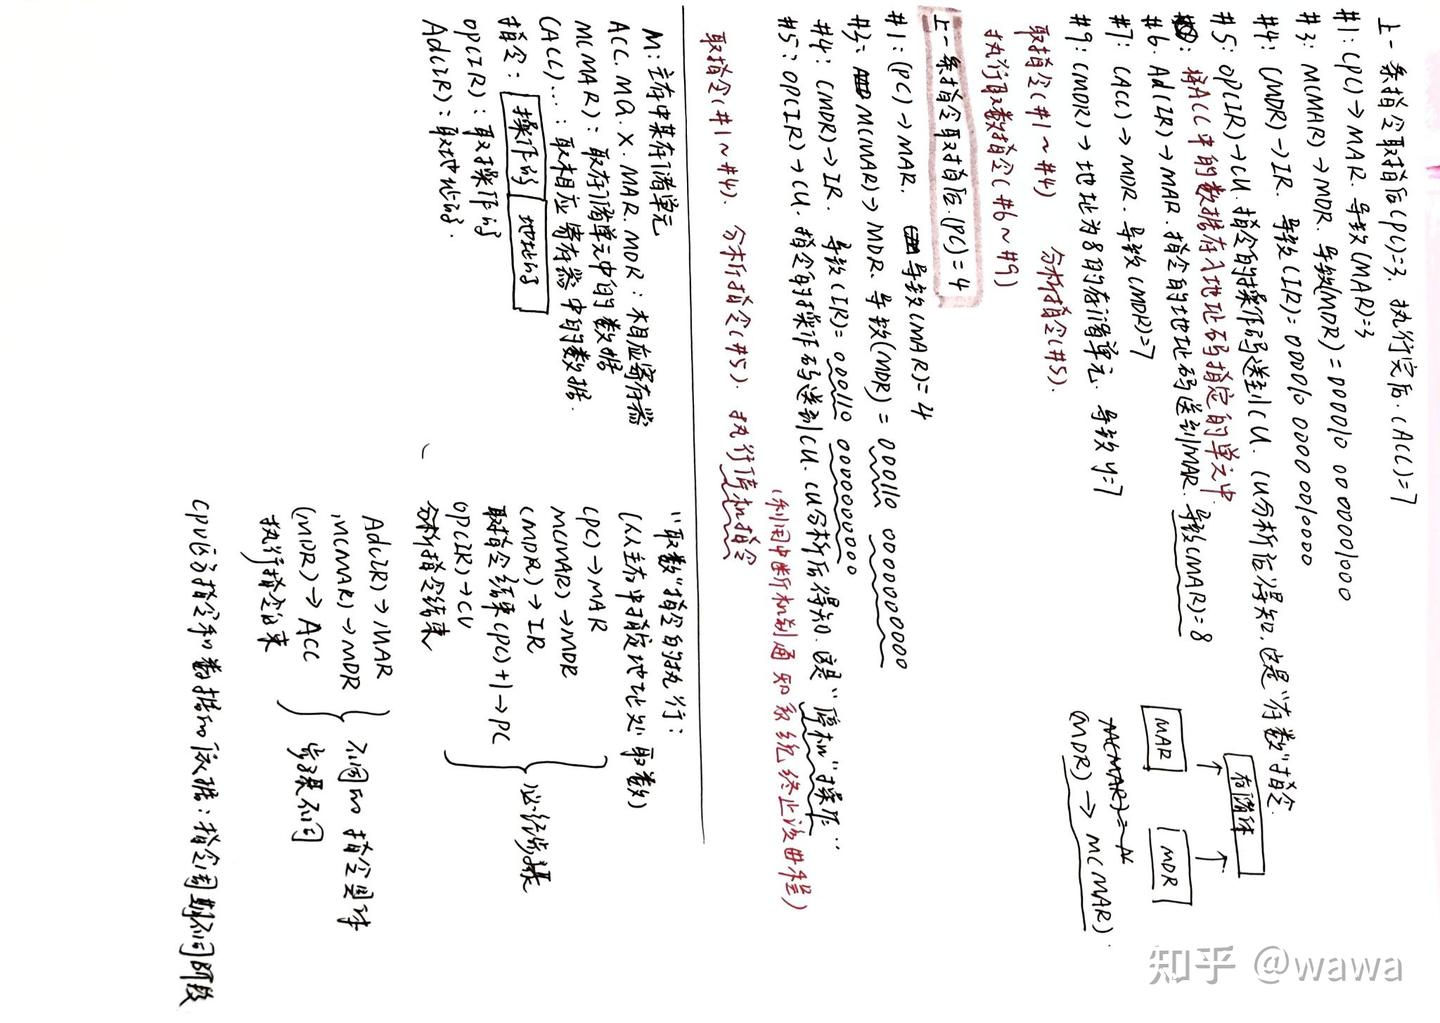 上一条指令取指后(PC)=3. 执行完后.(ACC)=7
#1: (PC)→MAR. 导致(MAR)=3
#3: M(MAR)→MDR. 导致(MDR)=000010 0000001000
#4: (MDR)→IR. 导致(IR)=000010 0000001000
#5: OP(IR)→CU. 指令的操作码送到CU. CU分析后得知.这是"存数"指令
将ACC中的数据存入地址码指定的单元中
#6. Ad(IR)→MAR 指令的地址码送到MAR. 导致(MAR)=8
#7: (ACC)→MDR. 导致(MDR)=7
#9: (MDR)→地址为8的存储单元. 导致y=7
取指令(#1~#4) 分析指令(#5).
执行取数指令(#6~#9)
MAR
MDR
存储体
(MDR)→M(MAR).
上一条指令取指后.(PC)=4
#1: (PC)→MAR. 导致(MAR)=4
#3: M(MAR)→MDR. 导致(MDR)=000110 0000000000
#4: (MDR)→IR. 导致(IR)=000110 0000000000
#5: OP(IR)→CU. 指令的操作码送到CU. CU分析后得知.这是"停机"操作
(利用中断机制通知系统终止该进程)
取指令(#1~#4). 分析指令(#5). 执行停机指令
M: 主存中某存储单元
ACC. MQ. X. MAR. MDR: 相应寄存器
M(MAR): 取存储单元中的数据
(ACC)...: 取相应寄存器中的数据.
指令: 操作码 地址码
OP(IR): 取操作码
Ad(IR): 取地址码.
"取数"指令的执行:
(从主存中指定地址处取数)
(PC)→MAR
M(MAR)→MDR
(MDR)→IR
取指令结束(PC)+1→PC
OP(IR)→CU
分析指令结束
必经步骤
Ad(IR)→MAR
M(MAR)→MDR
(MDR)→ACC
执行指令结束
不同的指令具体
步骤不同
CPU区分指令和数据的依据: 指令周期不同阶段
知乎 @wawa